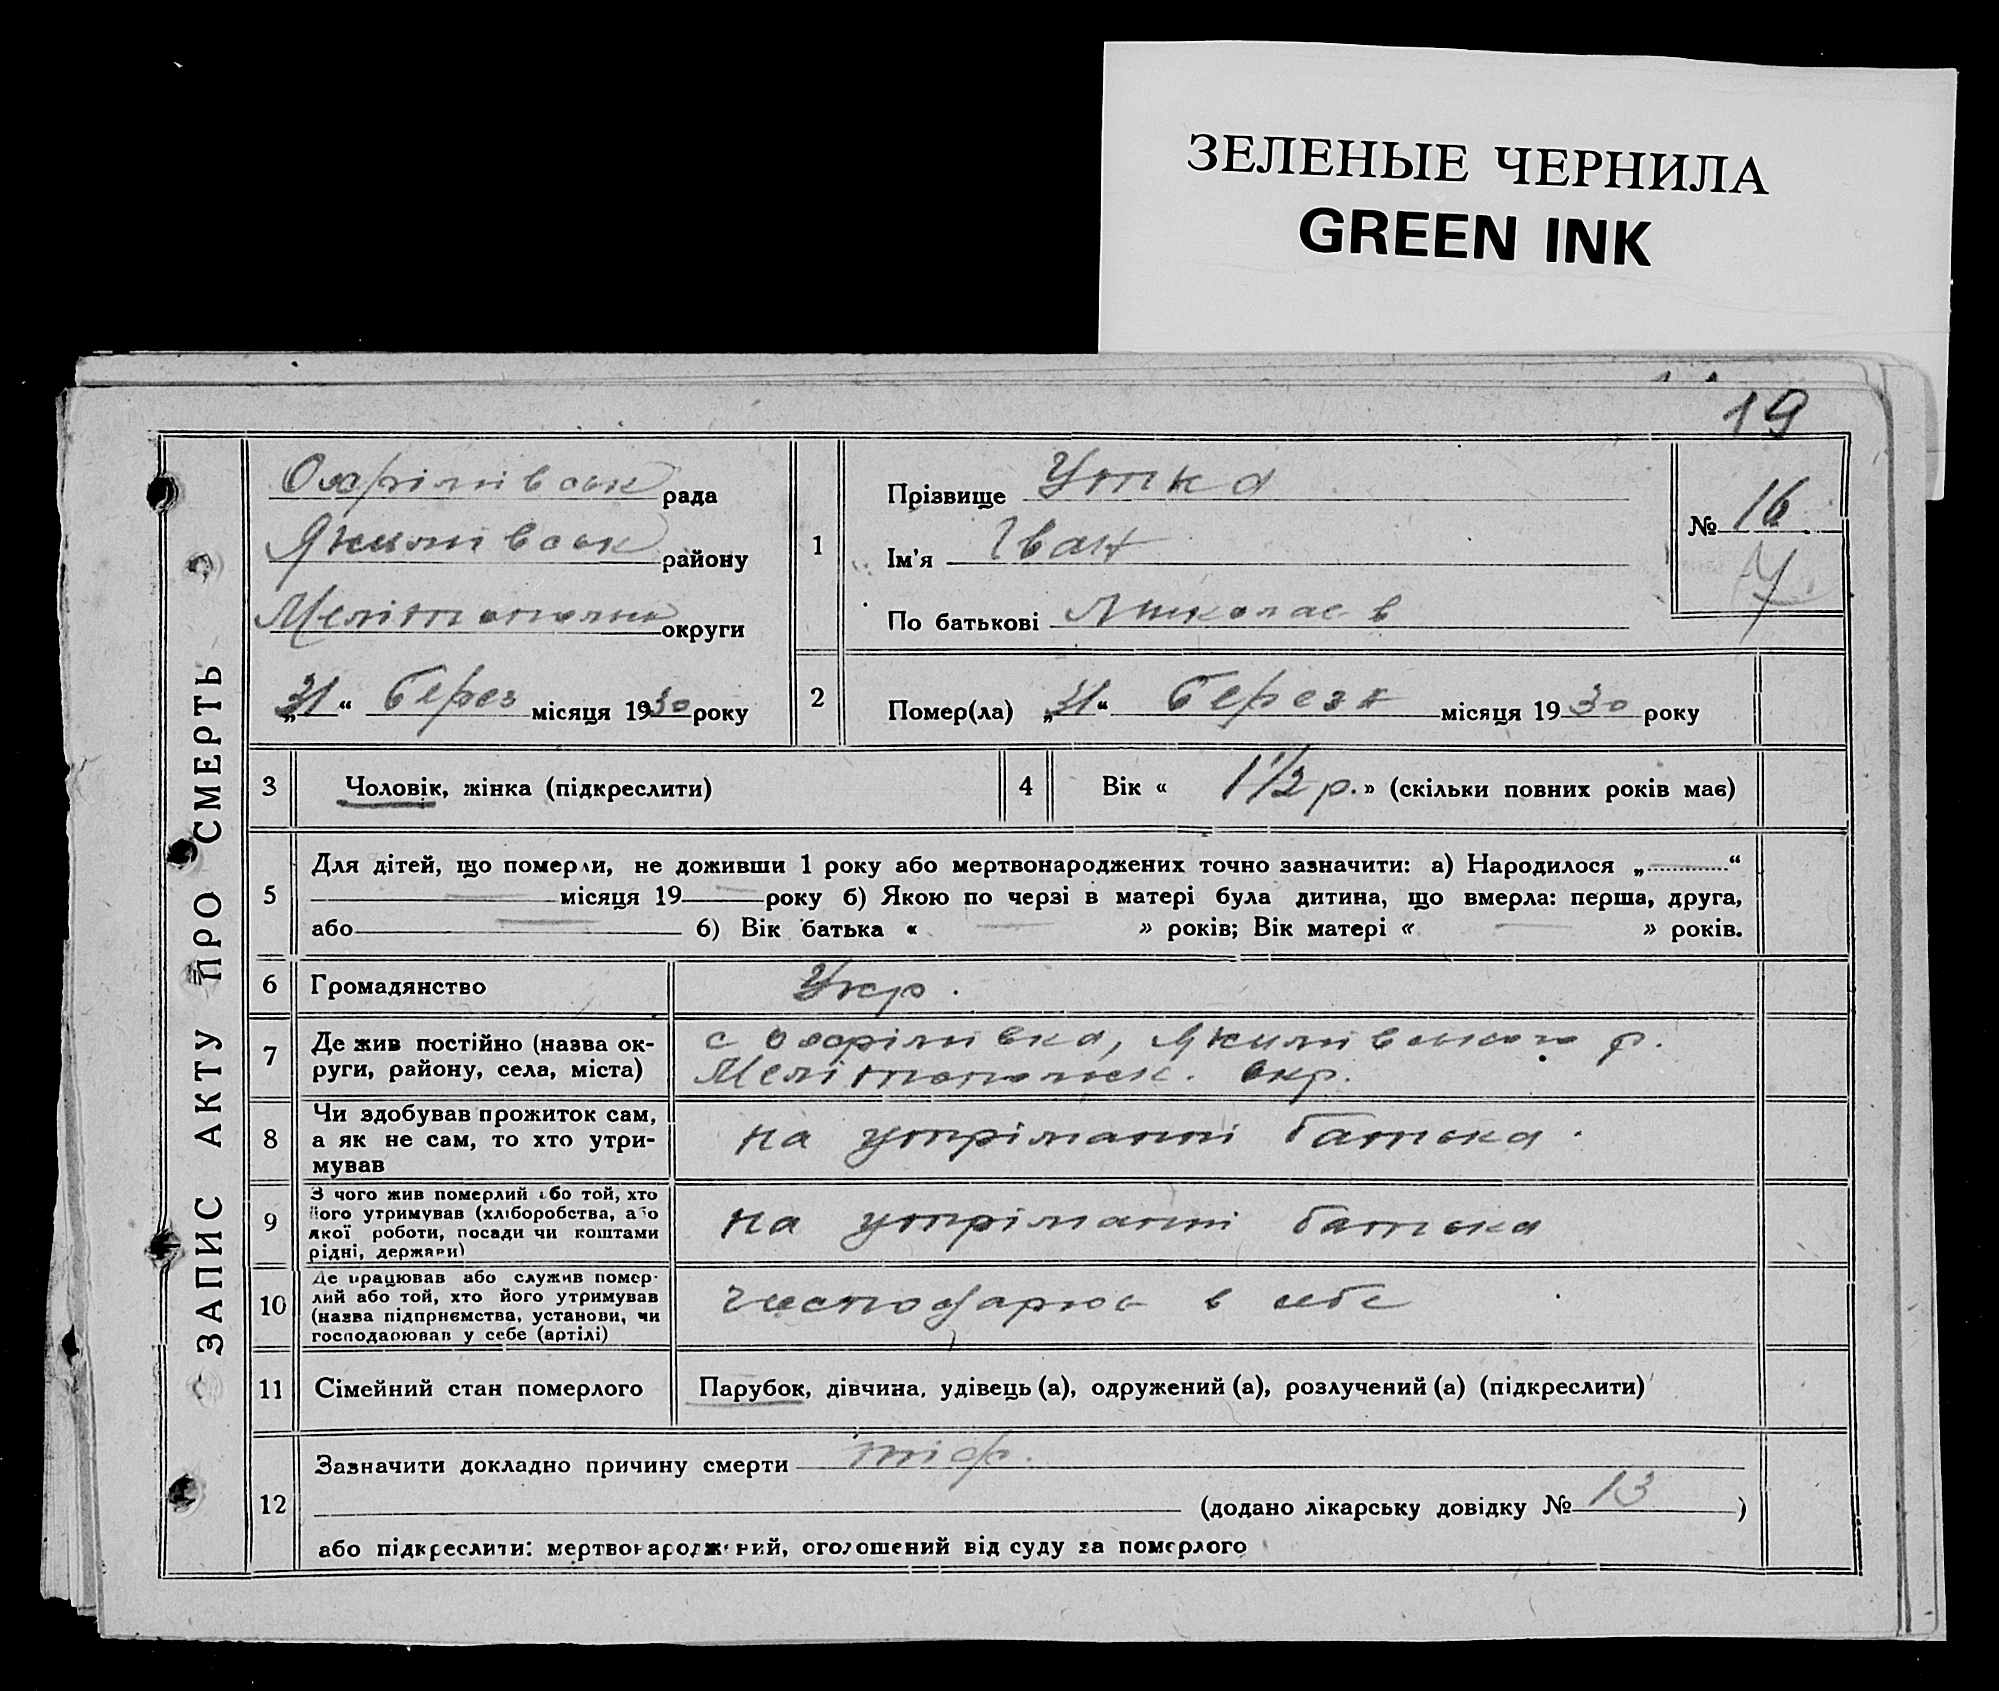 ЗЕЛЕНЫЕ ЧЕРНИЛА
GREEN INK
19
ЗАПИС АКТУ ПРО СМЕРТЬ
Охрімівськ рада
Якимівськ району
Мелітопольск округи
„31“ Берез місяця 1930 року
1
Прізвище Утка
Ім'я Іван
По батькові Миколаєв
№ 16
2
Помер(ла) „31“ Березня місяця 1930 року
3 Чоловік, жінка (підкреслити)
4 Вік « 1 1/2 р. » (скільки повних років має)
5
Для дітей, що померли, не доживши 1 року або мертвонароджених точно зазначити: а) Народилося „ — “
— місяця 19 — року б) Якою по черзі в матері була дитина, що вмерла: перша, друга,
або — б) Вік батька « — » років; Вік матері « — » років.
6 Громадянство Укр.
7 Де жив постійно (назва ок-
руги, району, села, міста)
с Охрімівка, Якимівського р.
Мелітопольск. окр.
8 Чи здобував прожиток сам,
а як не сам, то хто утри-
мував
на утріманні батька.
9 З чого жив померлий або той, хто
його утримував (хліборобства, або
якої роботи, посади чи коштами
рідні, держави)
на утріманні батька
10 Де працював або служив помер-
лий або той, хто його утримував
(назва підприємства, установи, чи
господарював у себе (артілі)
в себе
11 Сімейний стан померлого Парубок, дівчина, удівець (а), одружений (а), розлучений (а) (підкреслити)
12 Зазначити докладно причину смерти тіф.
(додано лікарську довідку № 13 )
або підкреслити: мертвонароджений, оголошений від суду за померлого